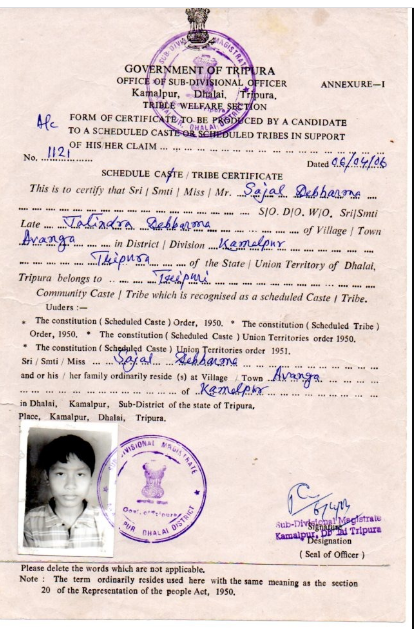 GOVERNMENT OF TRIPURA
OFFICE OF SUB-DIVISIONAL OFFICER
ANNEXURE—I
Kamalpur, Dhalai, Tripura,
TRIBLE WELFARE SECTION
FORM OF CERTIFICATE TO BE PRODUCED BY A CANDIDATE
TO A SCHEDULED CASTE OR SCHEDULED TRIBES IN SUPPORT
OF HIS/HER CLAIM
No. 1121
Dated 06/04/06
SCHEDULE CASTE / TRIBE CERTIFICATE
This is to certify that Sri | Smti | Miss | Mr. Sajal Debbarma
S|O. D|O. W|O. Sri|Smti
Late Jatindra Debbarma of Village | Town
Avanga in District | Division Kamalpur
Tripura of the State | Union Territory of Dhalai,
Tripura belongs to Tripuri
Community Caste | Tribe which is recognised as a scheduled Caste | Tribe.
Uuders :—
* The constitution ( Scheduled Caste ) Order, 1950. * The constitution ( Scheduled Tribe )
Order, 1950. * The constitution ( Scheduled Caste ) Union Territories order 1950.
* The constitution ( Scheduled Caste ) Union Territories order 1951.
Sri / Smti / Miss Sajal Debbarma
and or his / her family ordinarily reside (s) at Village / Town Avanga
of Kamalpur
in Dhalai, Kamalpur, Sub-District of the state of Tripura,
Place, Kamalpur, Dhalai, Tripura.
SUB-DIVISIONAL MAGISTRATE
Govt. of Tripura
PUR DHALAI DISTRICT
Sub-Divisional Magistrate
Signature
Kamalpur, Tripura
Designation
( Seal of Officer )
Please delete the words which are not applicable.
Note : The term ordinarily resides used here with the same meaning as the section
20 of the Representation of the people Act, 1950.